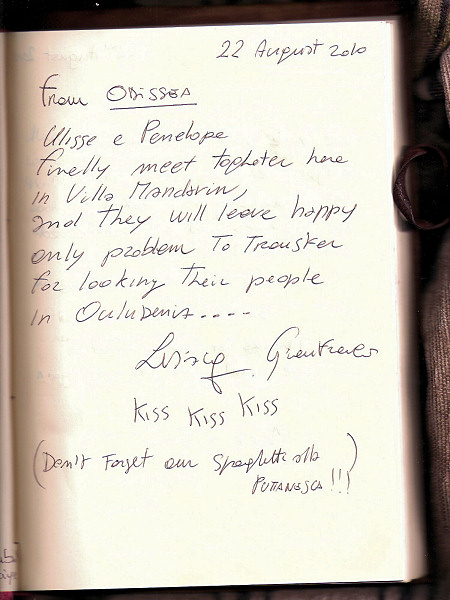 22 August 2010
From ODISSEA
Ulisse e Penelope
finelly meet togheter here
in Villa Mandarin,
and they will leave happy
only problem to Transfer
for looking their people
in Ouludeniz....
Gianfranco
Kiss Kiss Kiss
(Don't Forget our Spaghetti alla
PUTTANESCA!!!)